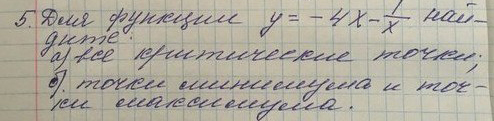 5. Для функции y = -4x - 1/x най-
дите:
а) все критические точки;
б). точки минимума и точ-
ки максимума.